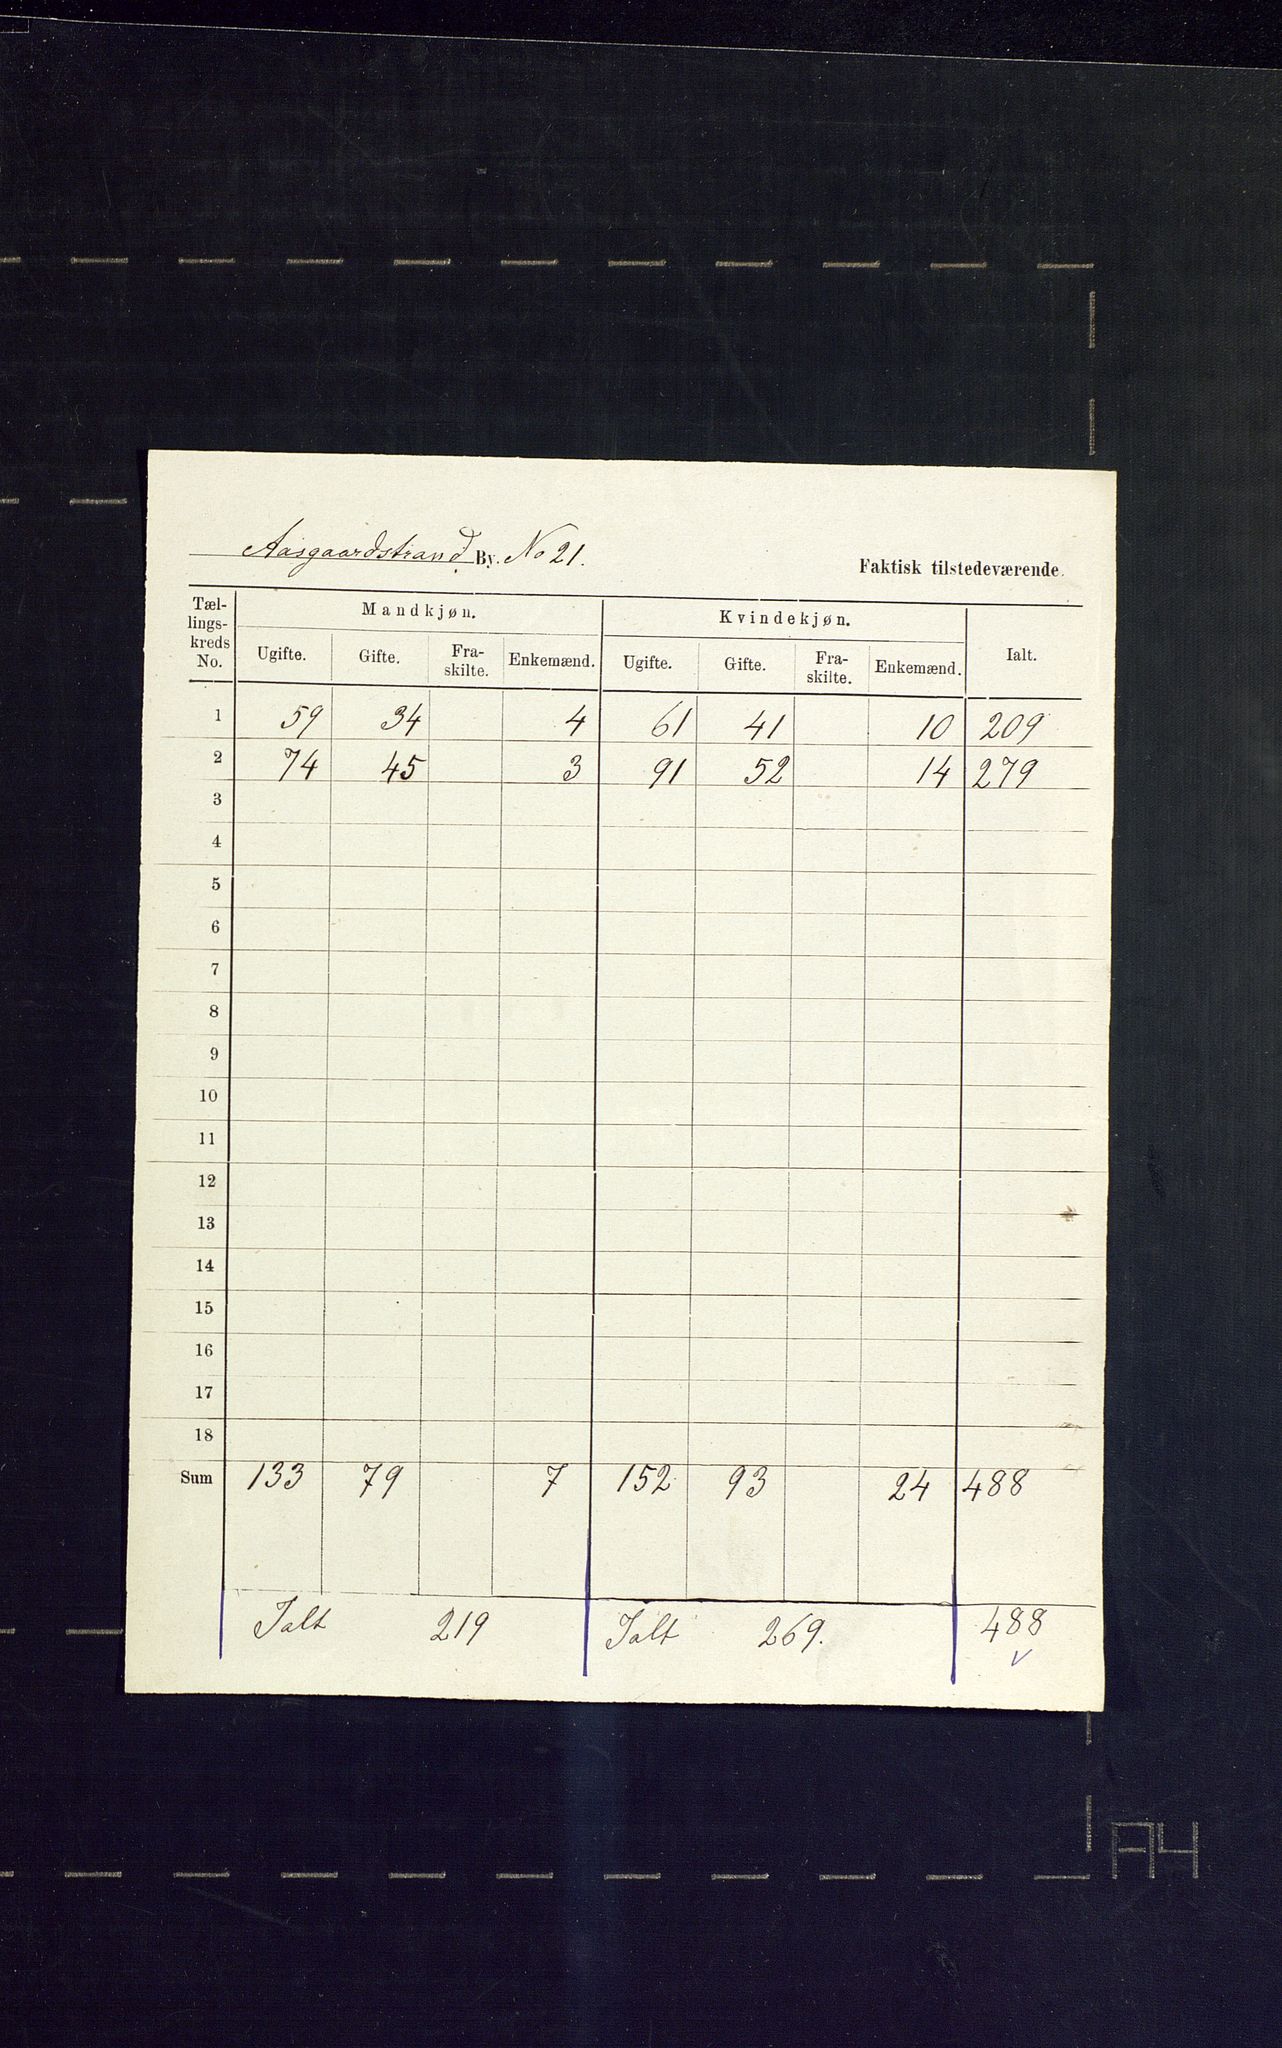 Aasgaardstrand By. No 21.
Faktisk tilstedeværende.
Tæl-
lings-
kreds
No.
Mandkjøn.
Kvindekjøn.
Ialt.
Ugifte. Gifte. Fra-
skilte. Enkemænd. Ugifte. Gifte. Fra-
skilte. Enkemænd.
1 59 34 4 61 41 10 209
2 74 45 3 91 52 14 279
3
4
5
6
7
8
9
10
11
12
13
14
15
16
17
18
Sum 133 79 7 152 93 24 488
Ialt 219 Ialt 269. 488
A4